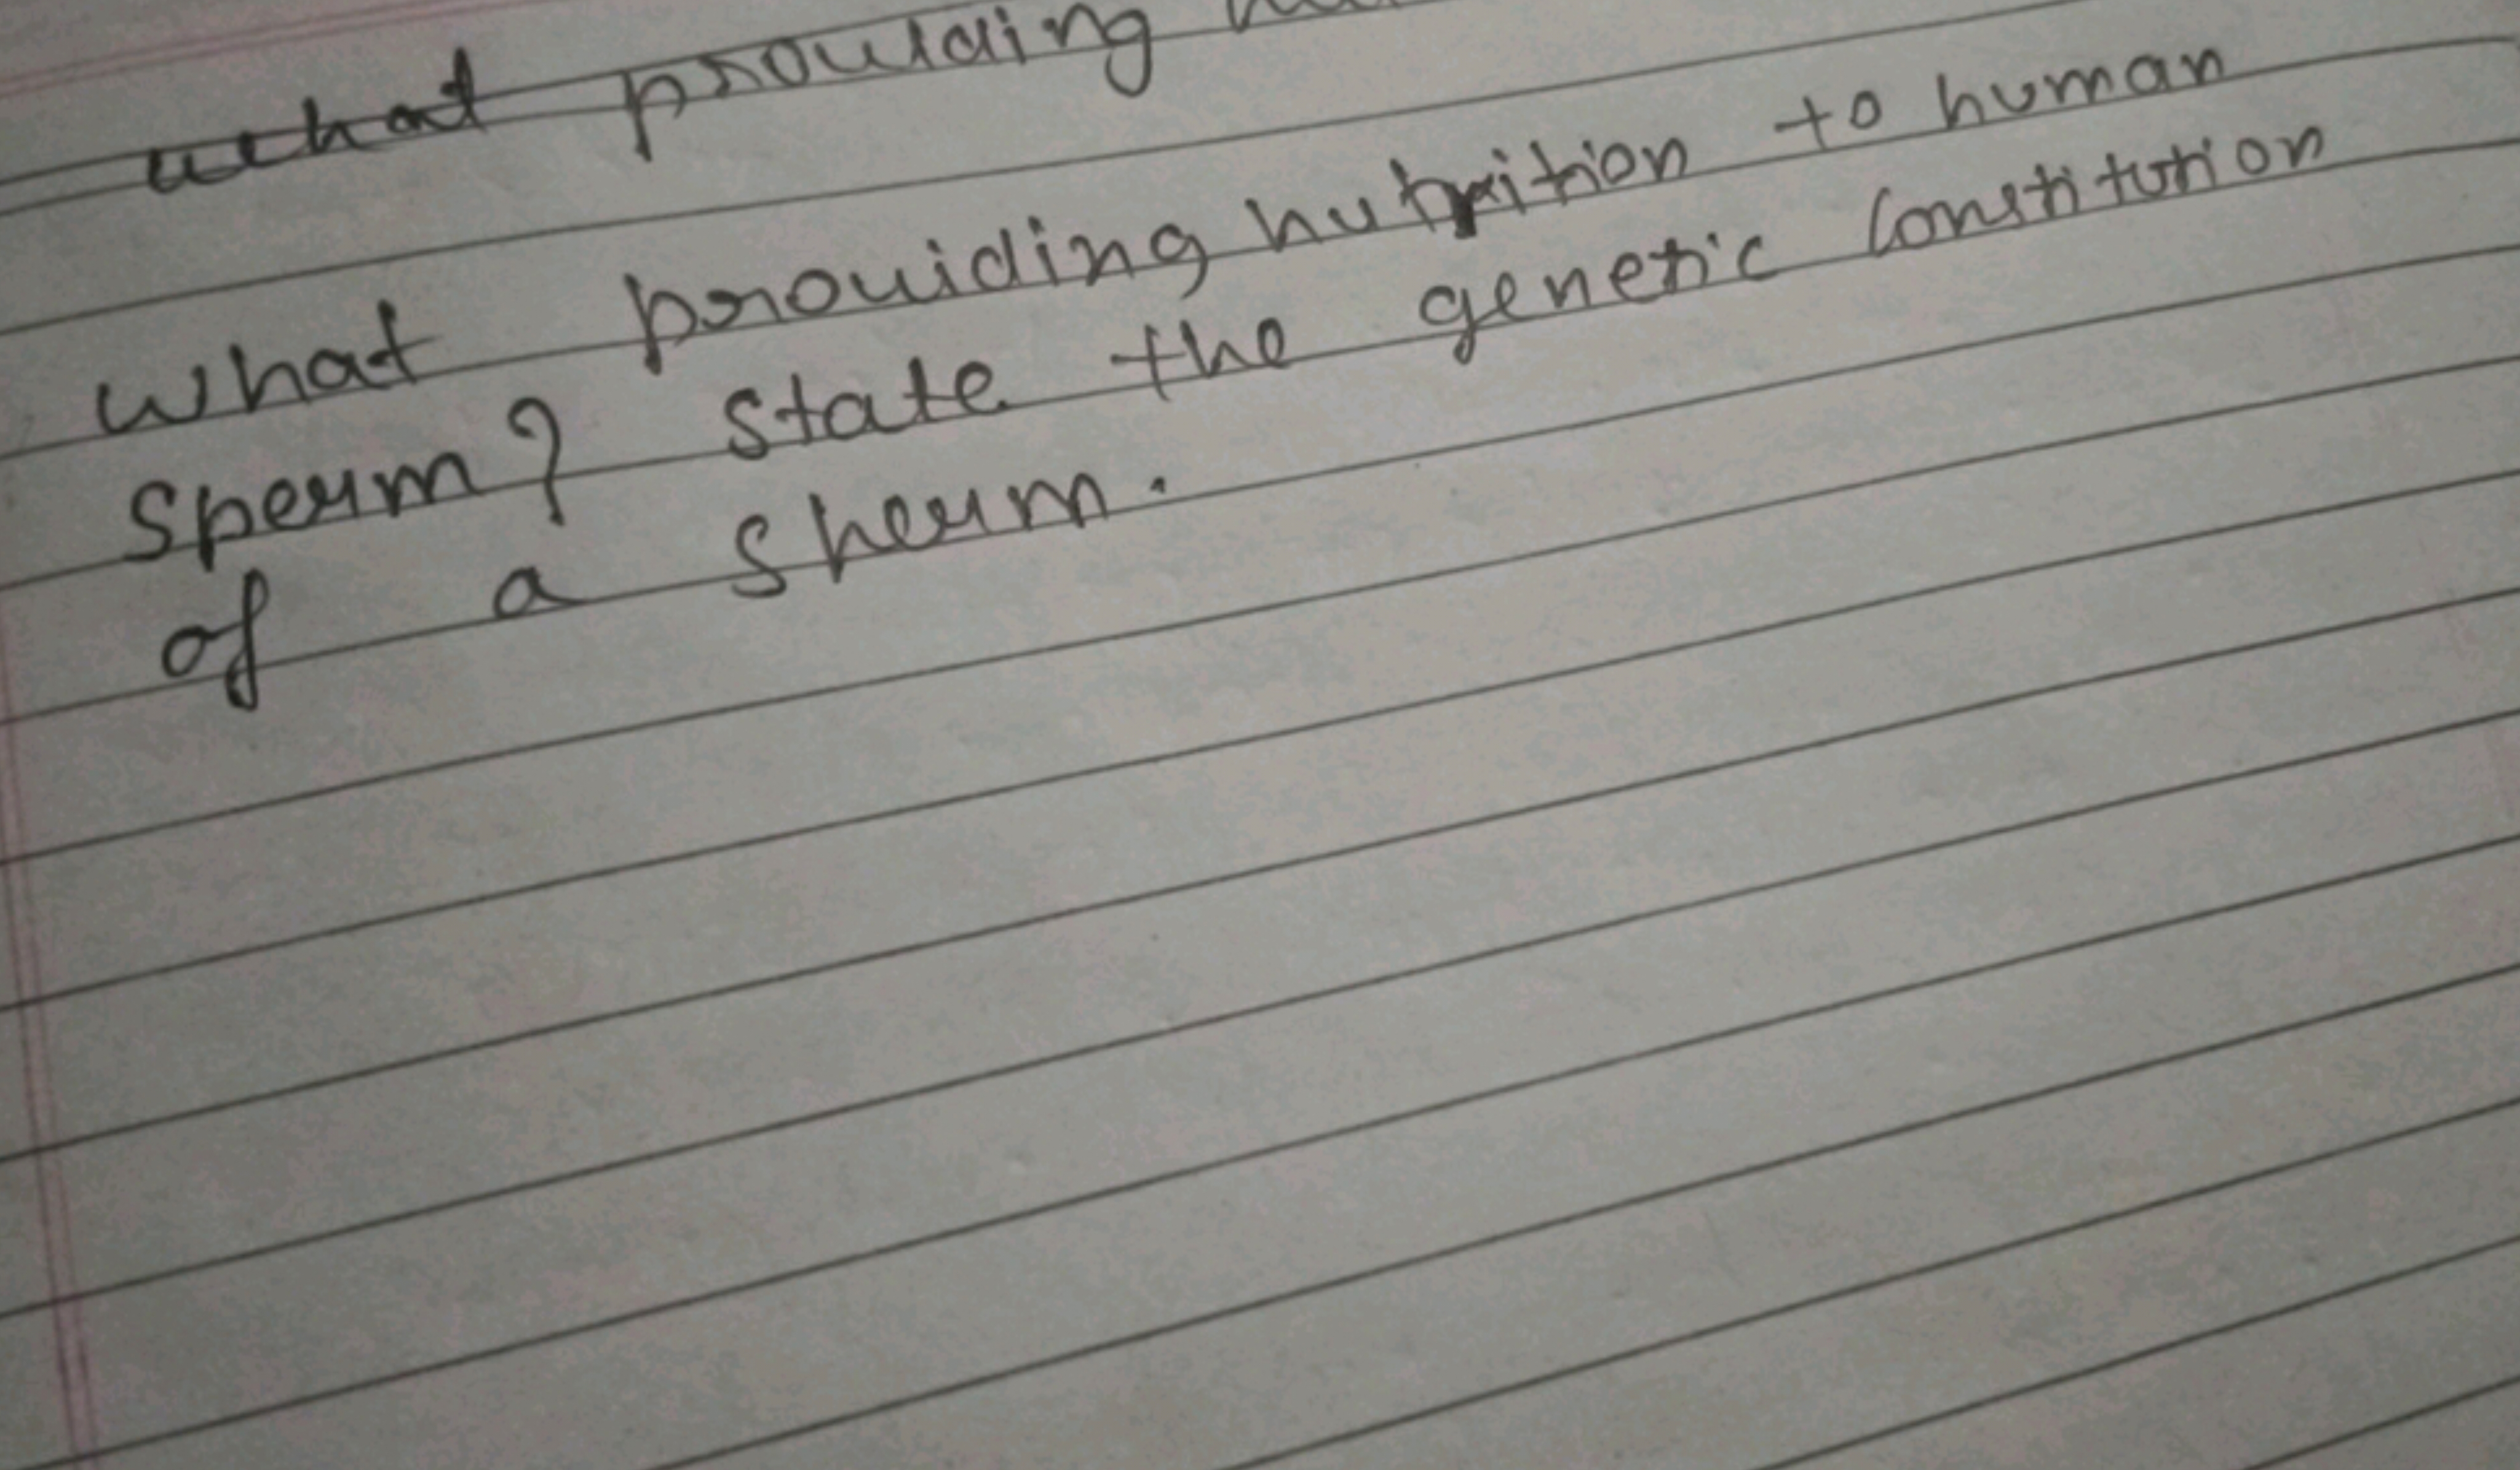 what prouiding
what prouiding nutrition to human
sperm? state the genetic constitution
of a sherm.